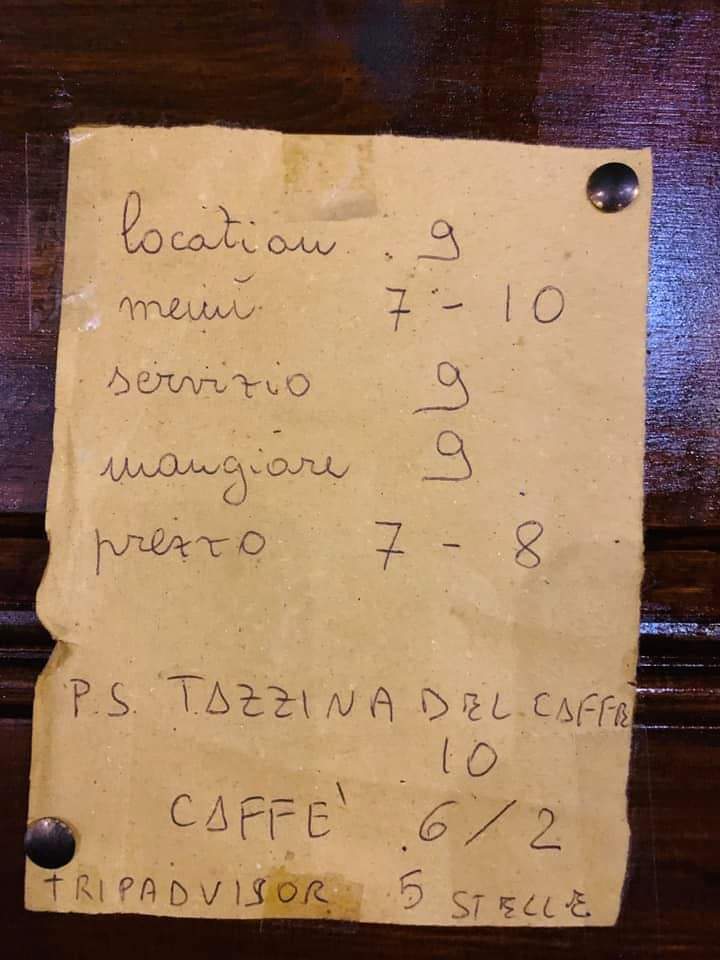 location 9
menù 7 - 10
servizio 9
mangiare 9
prezzo 7 - 8
P.S. TAZZINA DEL CAFFÈ
10
CAFFE` 6/2
TRIPADVISOR 5 STELLE